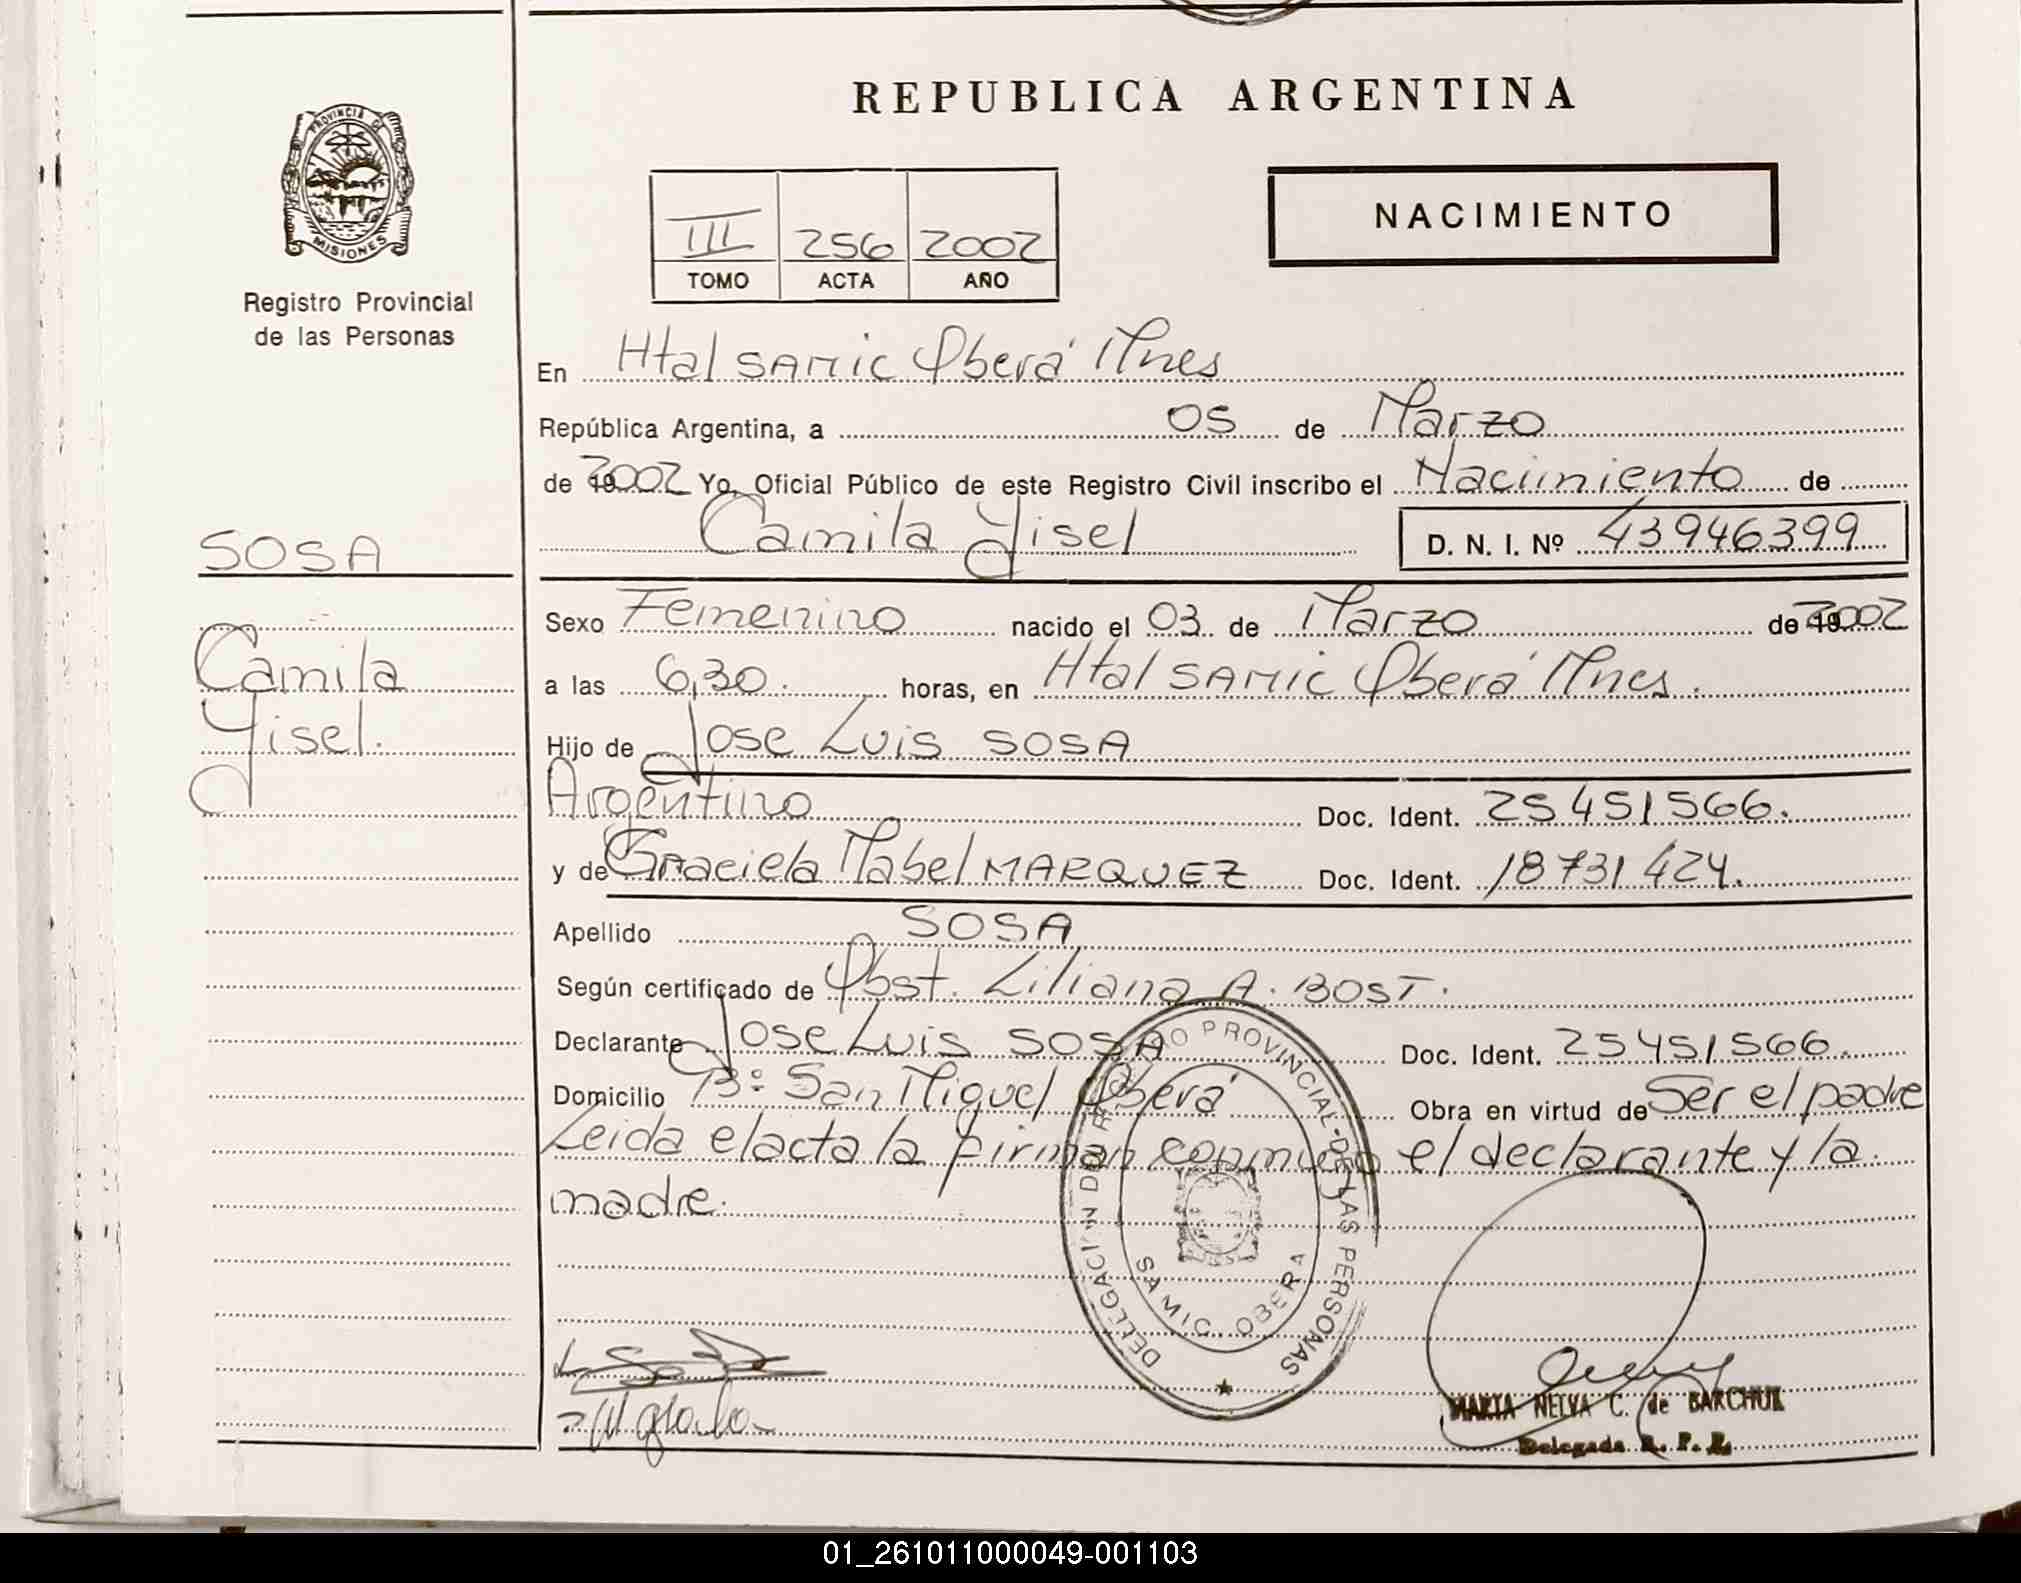 REPUBLICA ARGENTINA
PROVINCIA DE
MISIONES
Registro Provincial
de las Personas
NACIMIENTO
III 256 2002
TOMO ACTA AÑO
En Htal SAMIC Oberá Mnes
República Argentina, a 05 de Marzo
de 2002 Yo, Oficial Público de este Registro Civil inscribo el Nacimiento de
Camila Yisel D. N. I. Nº 43946399
SOSA
Camila
Yisel.
Sexo Femenino nacido el 03 de Marzo de 2002
a las 6,30. horas, en Htal SAMIC Oberá Mnes.
Hijo de Jose Luis SOSA
Argentino Doc. Ident. 25451566.
y de Graciela Mabel MARQUEZ Doc. Ident. 18731424.
Apellido SOSA
Según certificado de Obst. Liliana A. BOST.
Declarante Jose Luis SOSA Doc. Ident. 25451566.
Domicilio Bº San Miguel Oberá Obra en virtud de Ser el padre
Leida el acta la firman conmigo el declarante y la
madre.
DELEGACION DEL REGISTRO PROVINCIAL DE LAS PERSONAS
SAMIC OBERA
MARIA NELVA C. de BARCHUK
Delegada R. P. P.
01_261011000049-001103